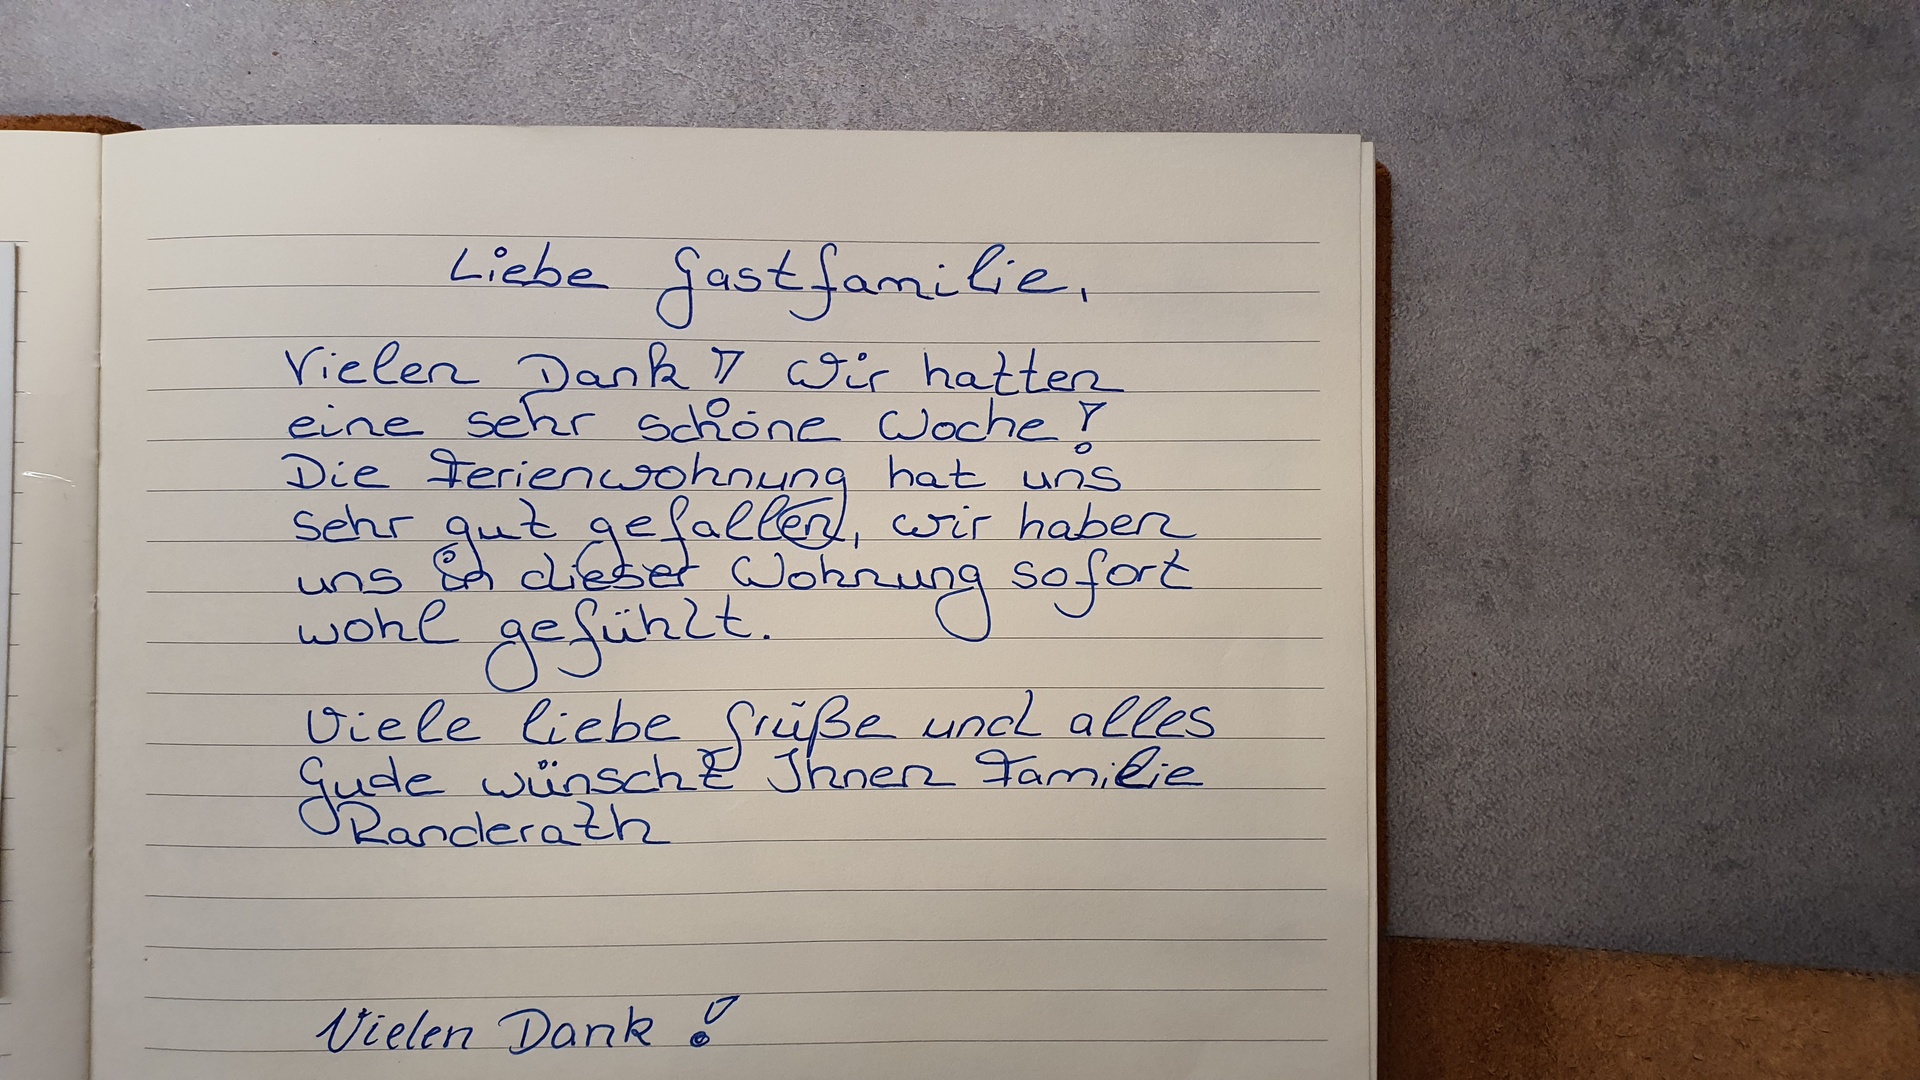 Liebe Gastfamilie,
Vielen Dank! Wir hatten
eine sehr schöne Woche!
Die Ferienwohnung hat uns
sehr gut gefallen, wir haben
uns in dieser Wohnung sofort
wohl gefühlt.
Viele liebe Grüße und alles
Gude wünscht Ihnen Familie
Randerath
Vielen Dank!